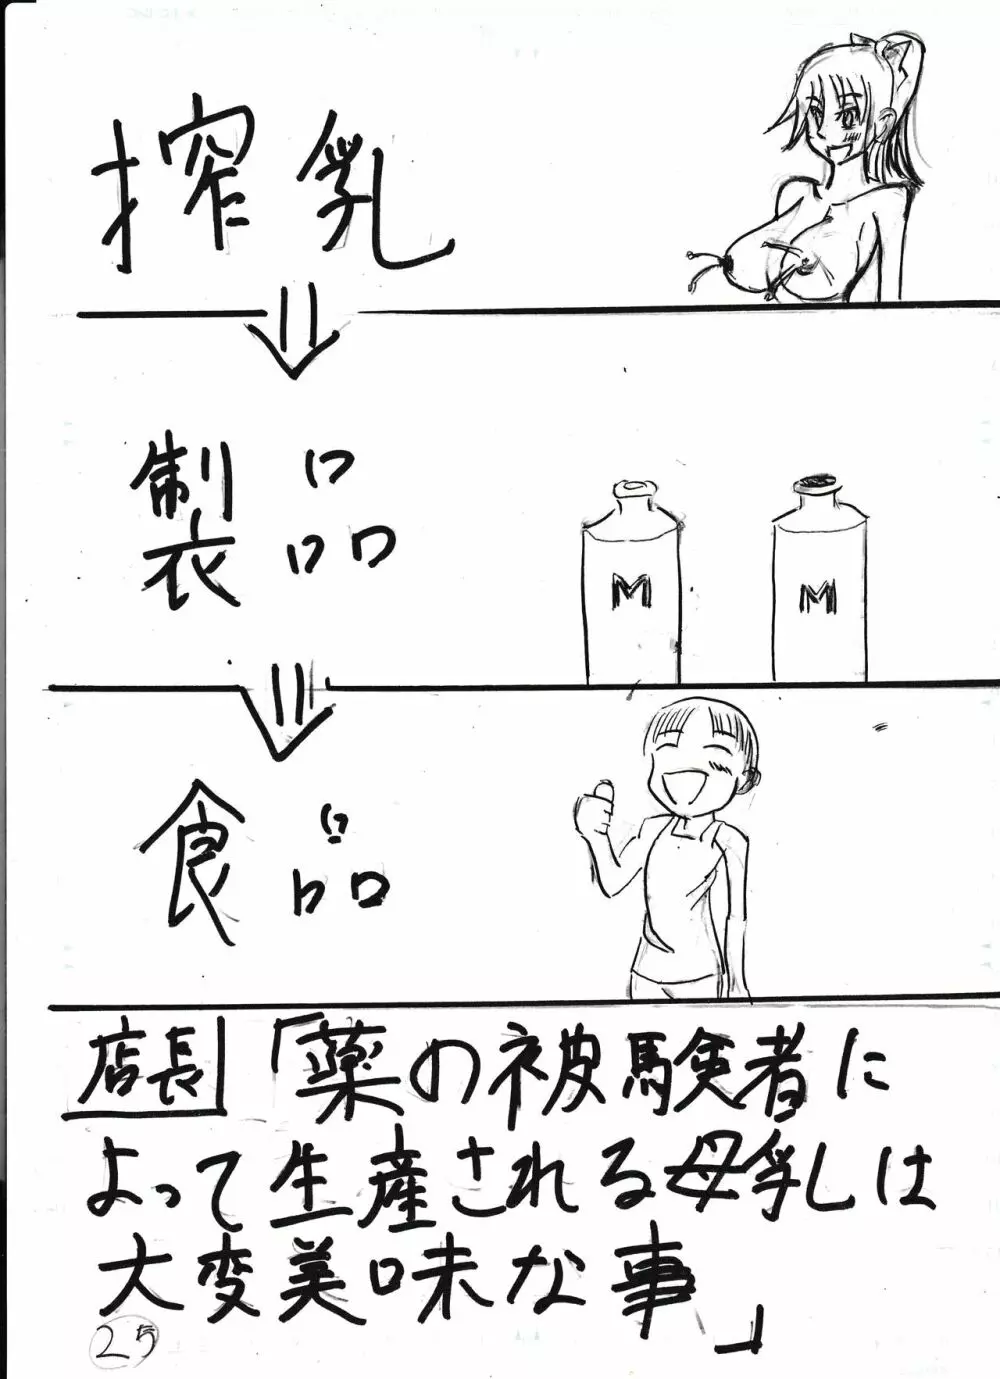 搾乳
製品
M M
食品
店長「薬の被験者に
よって生産される母乳は
大変美味な事」
25